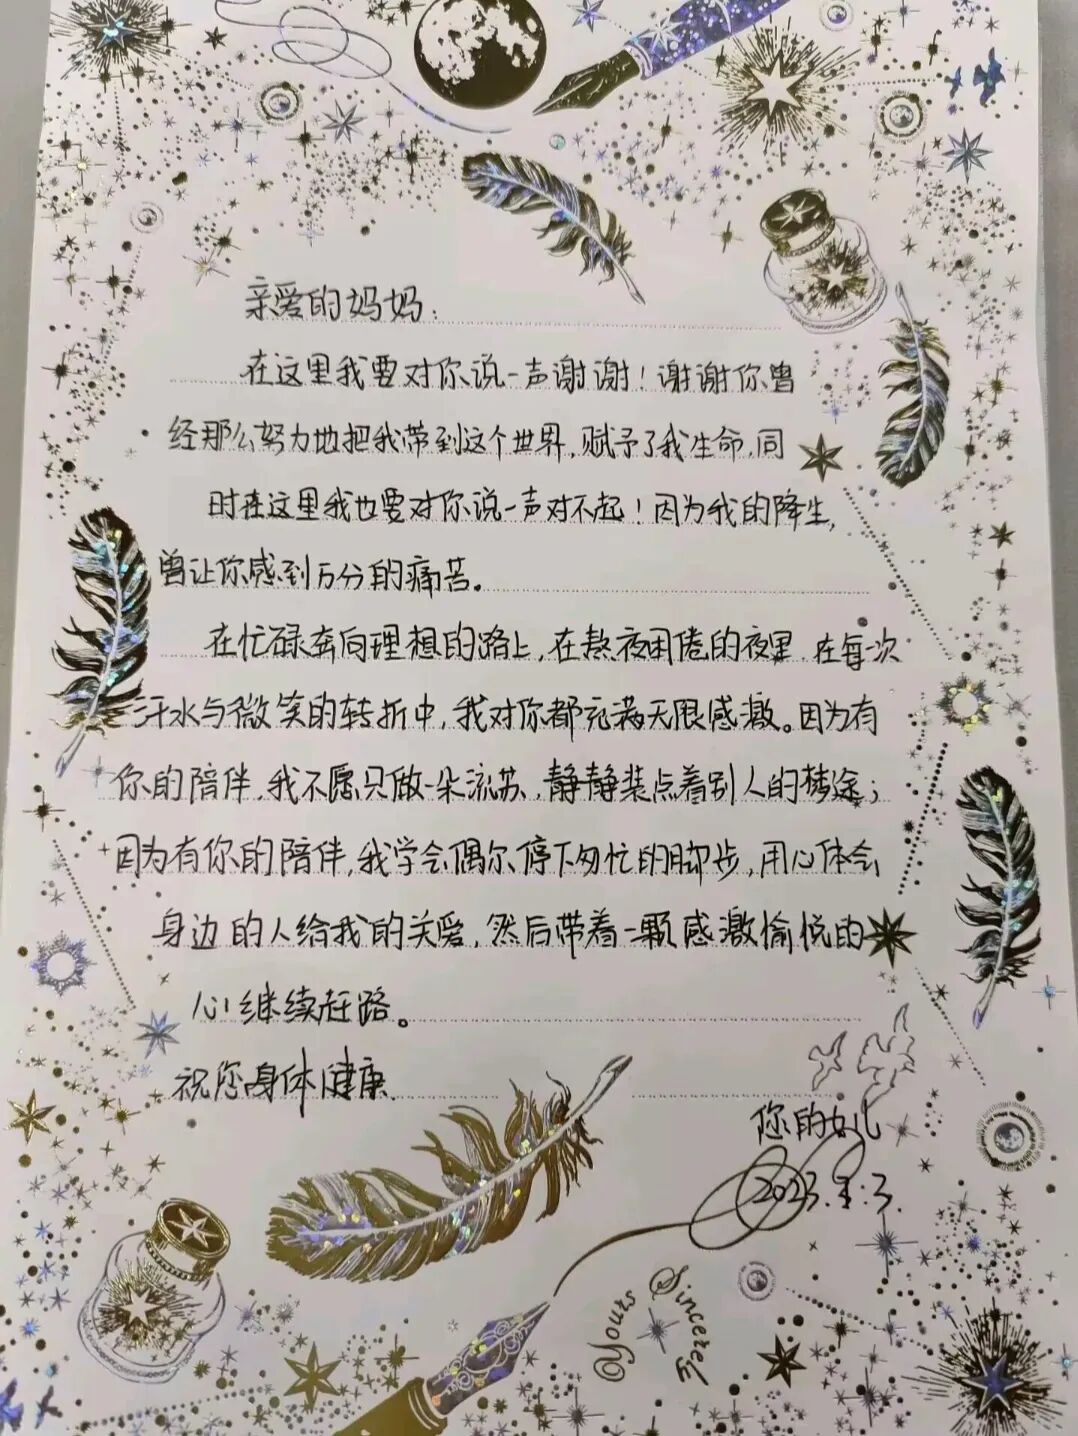 亲爱的妈妈：
在这里我要对你说一声谢谢！谢谢你曾
经那么努力地把我带到这个世界，赋予了我生命，同
时在这里我也要对你说一声对不起！因为我的降生，
曾让你感到万分的痛苦。
在忙碌奔向理想的路上，在熬夜困倦的夜里，在每一次
汗水与微笑的转折中，我对你都充满无限感激。因为有
你的陪伴，我不愿只做一朵流苏，静静装点着别人的梦途；
因为有你的陪伴，我学会偶尔停下匆忙的脚步，用心体会
身边的人给我的关爱，然后带着一颗感激愉悦的
心继续赶路。
祝您身体健康.
你的女儿
2023.
Yours Sincerely